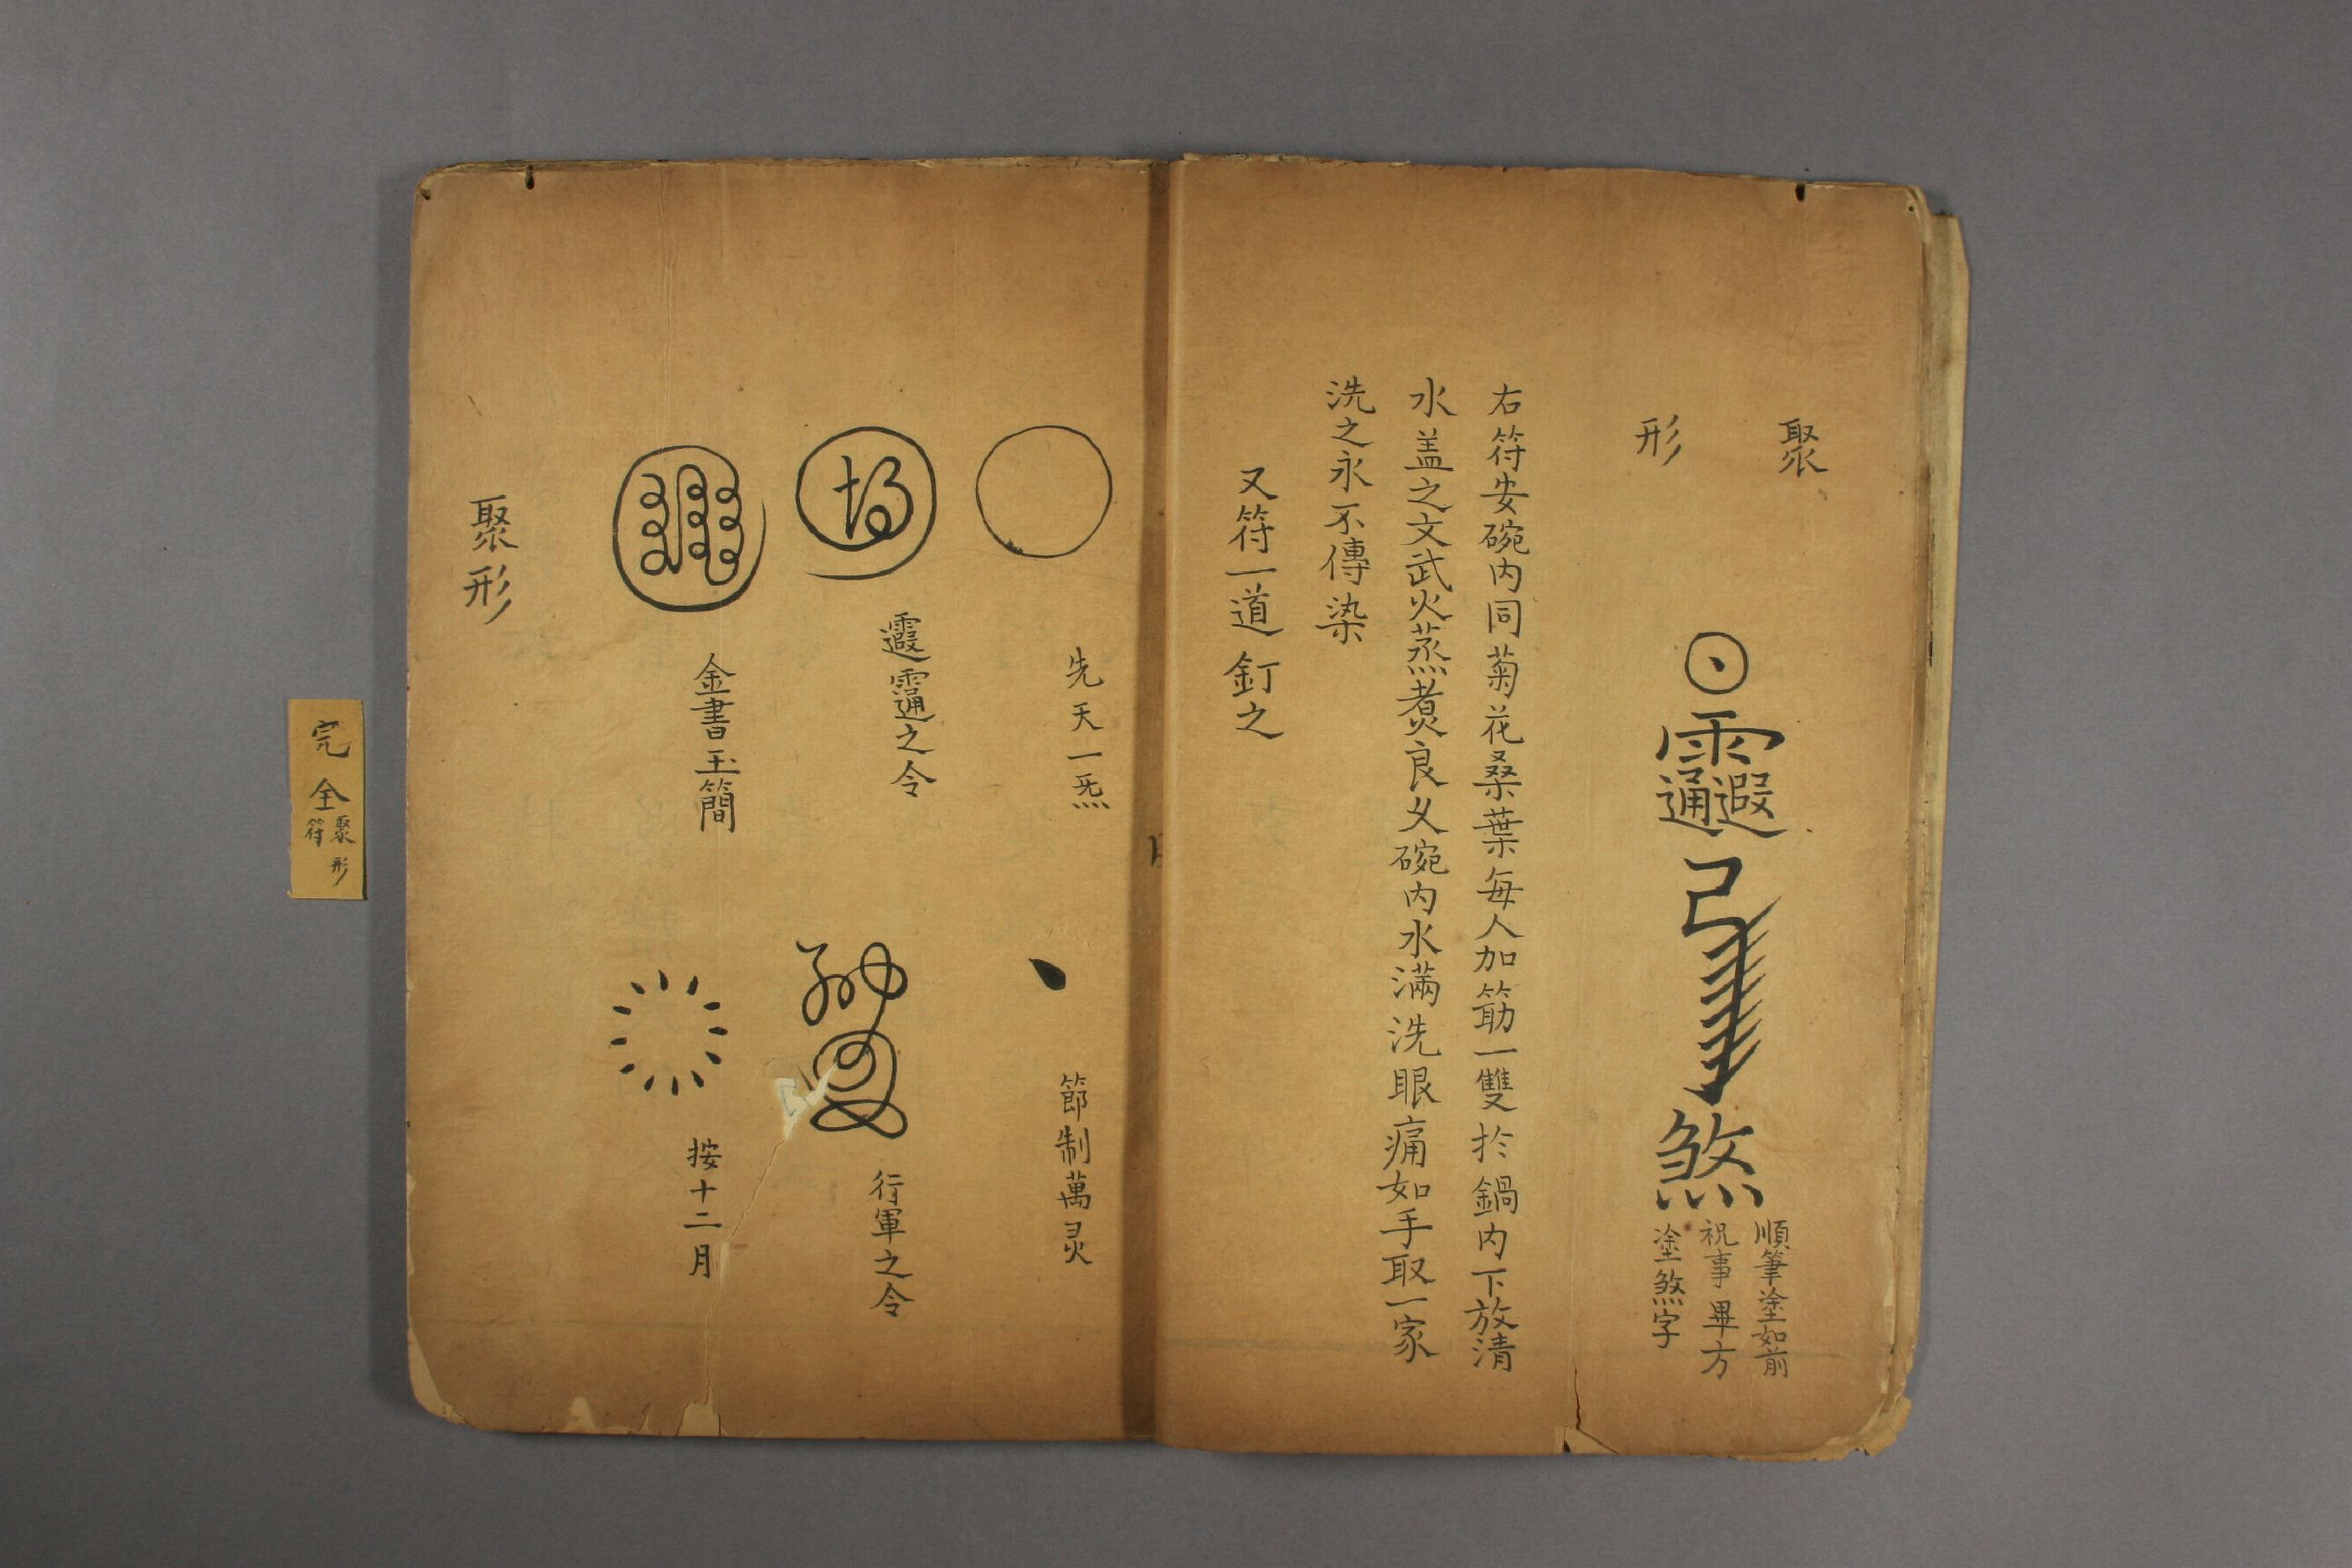 聚
形
順筆塗如前
祝事畢方
塗煞字
煞
右符安碗内同菊花桑葉每人加筯一雙扵鍋内下放清
水盖之文武火蒸煮良乆碗内水滿洗眼痛如手取一家
洗之永不傳染
又符一道釘之
先天一炁
節制萬灵
之令
行軍之令
金書玉簡
按十二月
聚形
完全
聚形
符